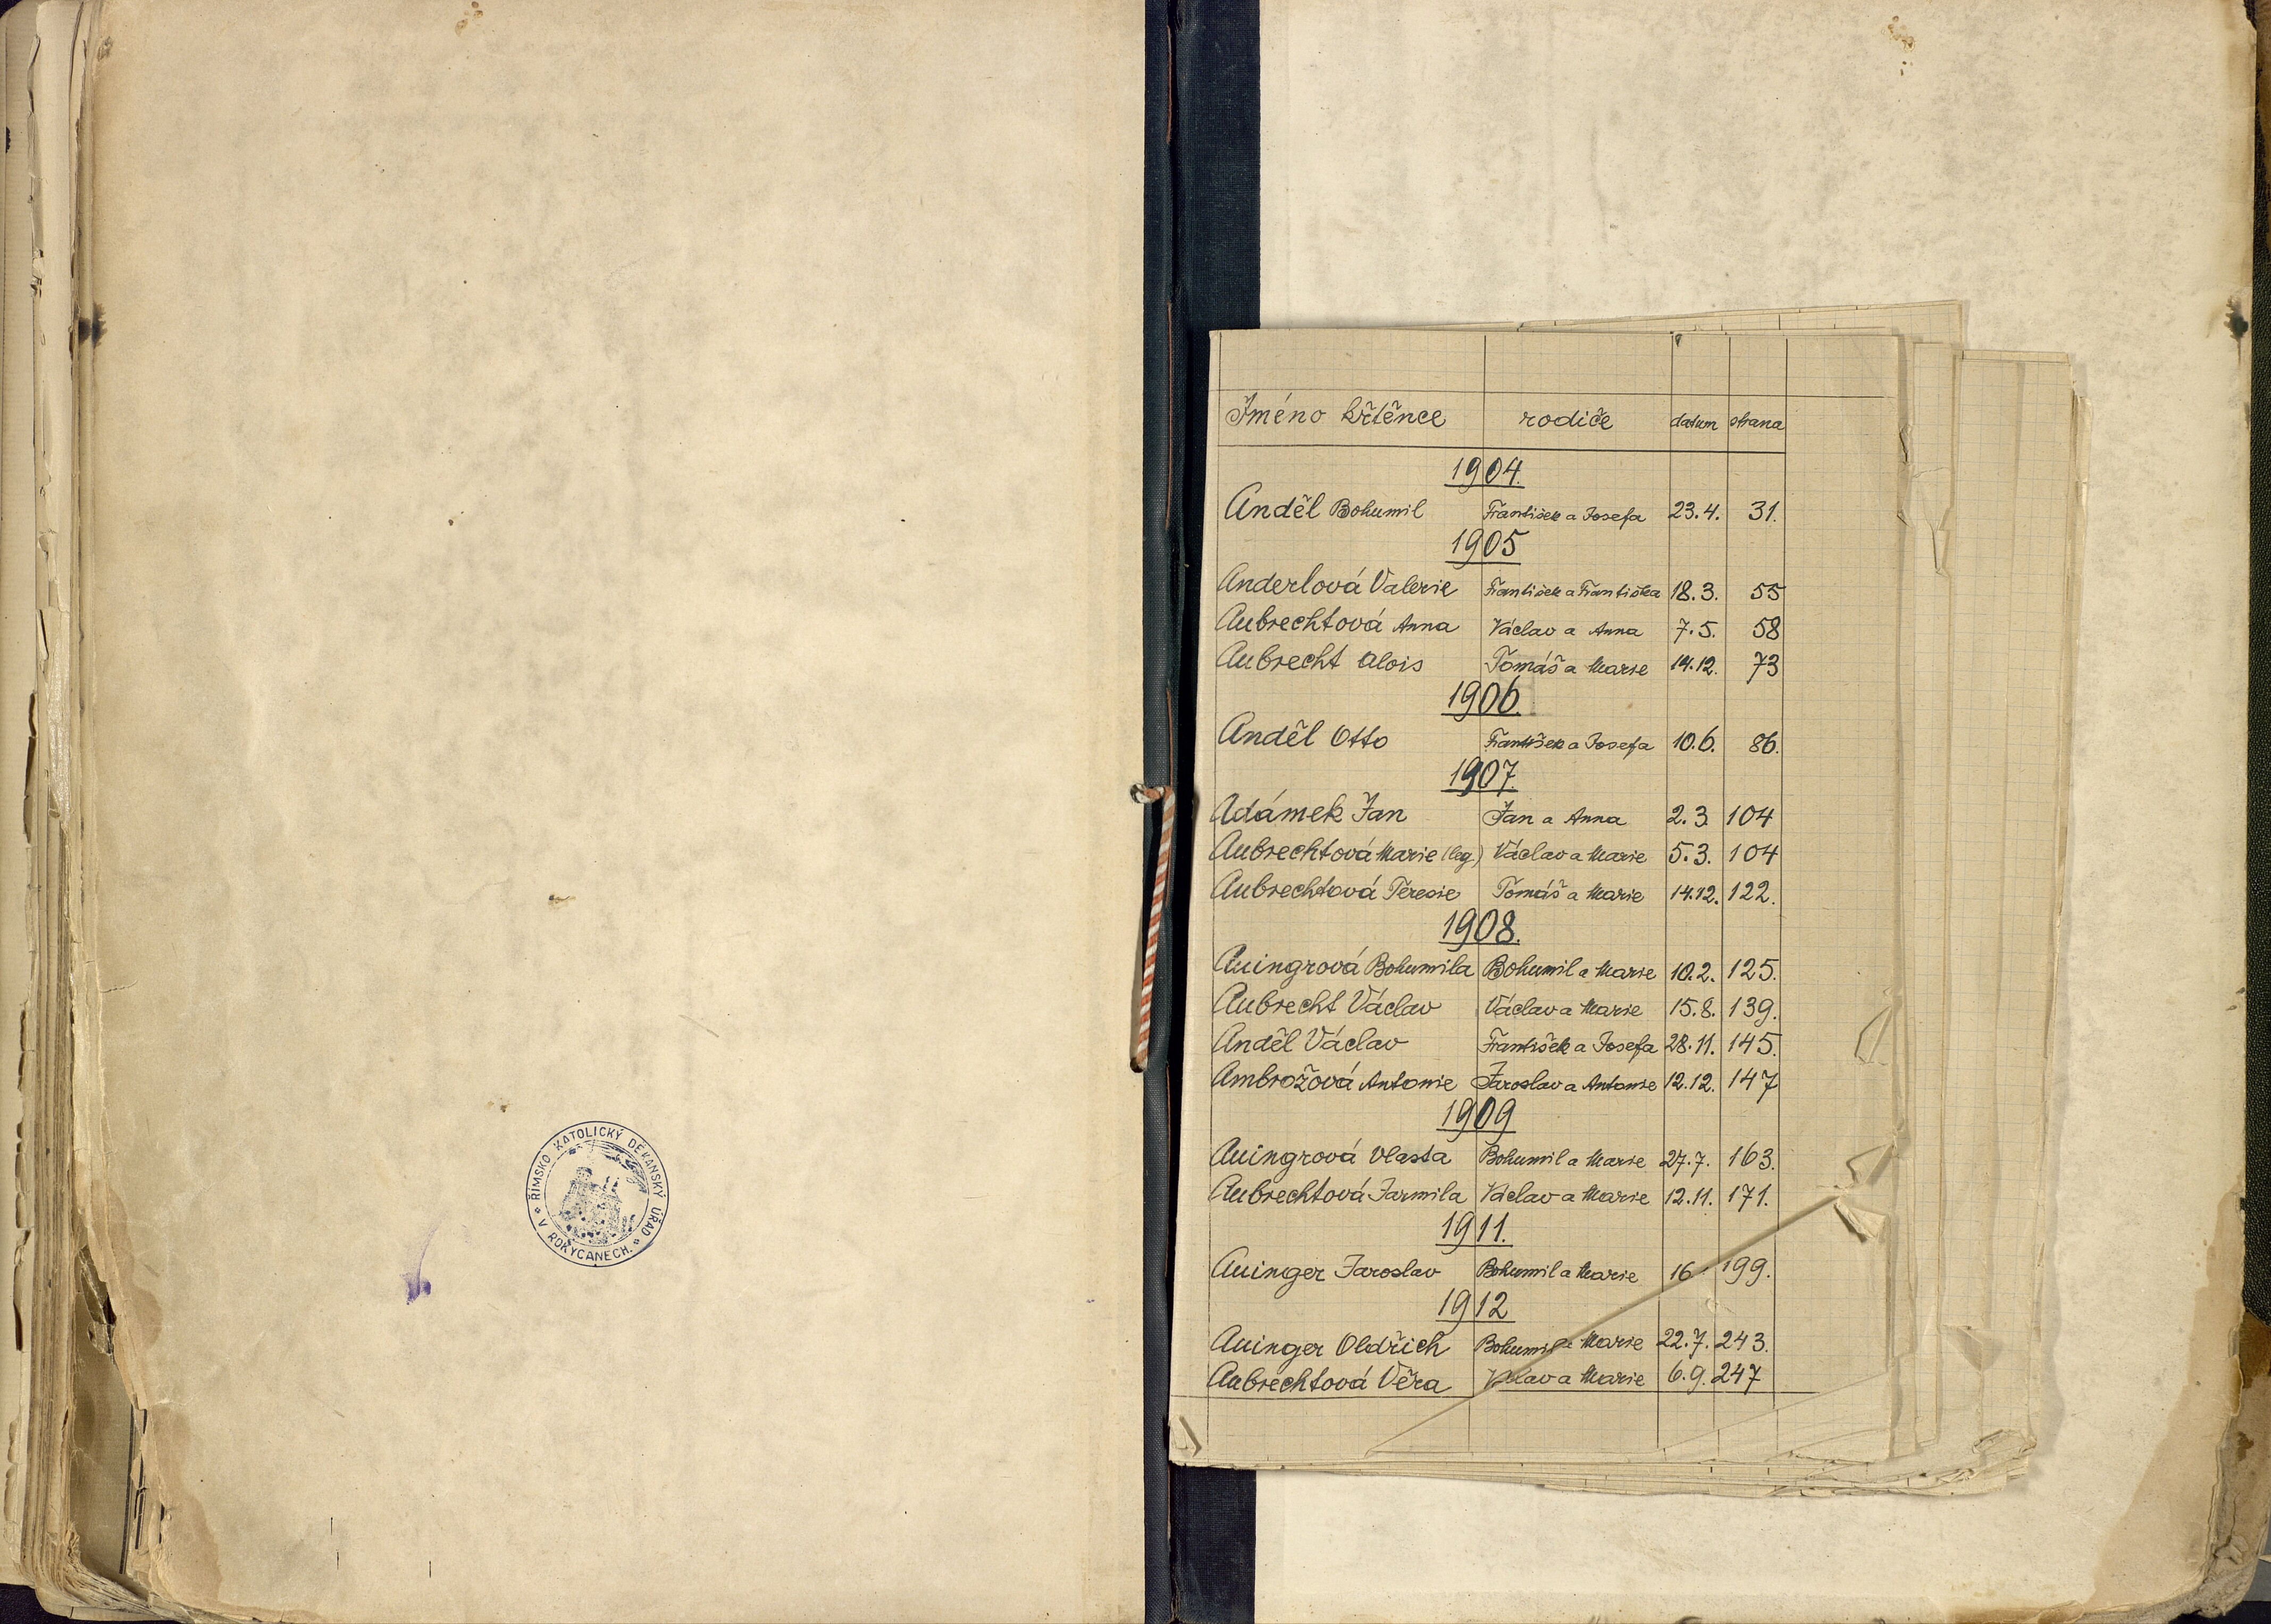 ŘÍMSKO KATOLICKÝ DĚKANSKÝ ÚŘAD
V ROKYCANECH.
Jméno křtěnce rodiče datum strana
1904.
Anděl Bohumil František a Josefa 23.4. 31.
1905
Anderlová Valerie František a Františka 18.3. 55
Aubrechtová Anna Václav a Anna 7.5. 58
Aubrecht Alois Tomáš a Marie 14.12. 73
1906.
Anděl Otto František a Josefa 10.6. 86.
1907.
Adámek Jan Jan a Anna 2.3. 104
Aubrechtová Marie (leg.) Václav a Marie 5.3. 104
Aubrechtová Terezie Tomáš a Marie 14.12. 122.
1908.
Auingrová Bohumila Bohumil a Marie 10.2. 125.
Aubrecht Václav Václav a Marie 15.8. 139.
Anděl Václav František a Josefa 28.11. 145.
Ambrožová Antonie Jaroslav a Antonie 12.12. 147
1909
Auingrová Vlasta Bohumil a Marie 27.7. 163.
Aubrechtová Jarmila Václav a Marie 12.11. 171.
1911.
Auinger Jaroslav Bohumil a Marie 16 199.
1912
Auinger Oldřich Bohumil a Marie 22.7. 243.
Aubrechtová Věra Václav a Marie 6.9. 247